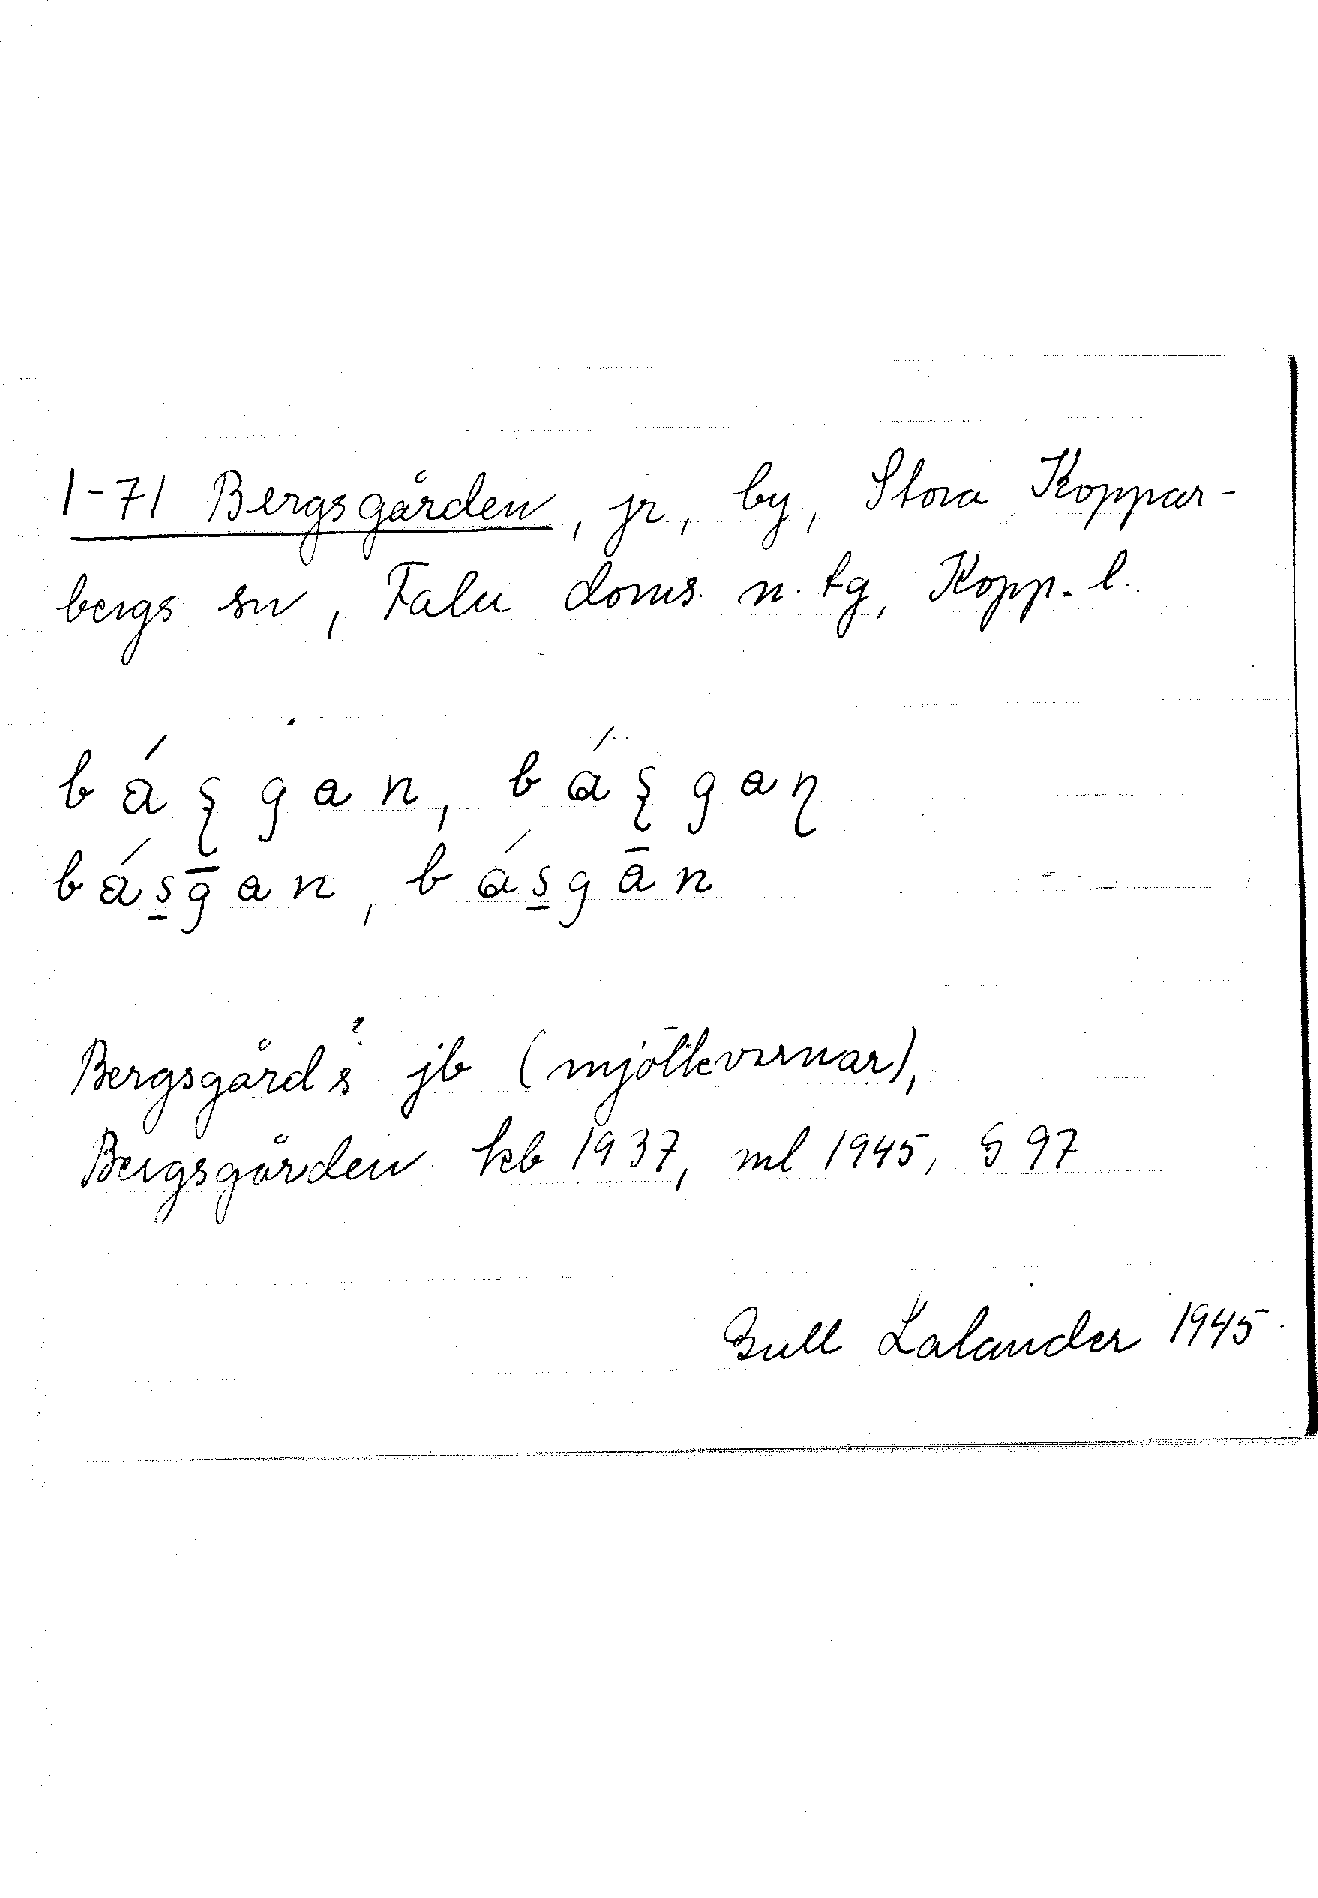 1-71 Bergsgården, jr, by, Stora Koppar-
bergs sn, Falu doms. n. tg, Kopp. l.
báʂgan, báʂgaɳ
bás̱ḡan, bás̱gān
Bergsgårds jb (mjölkvarnar),
Bergsgården kb 1937, ml 1945, § 97
Gull Lalander 1945